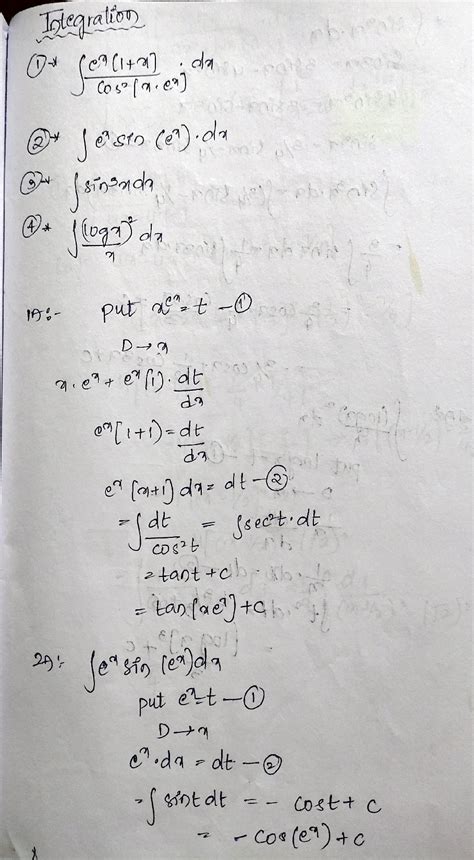 Integration
① → ∫ eˣ(1+x) / cos²(x·eˣ) · dx
② → ∫ eˣ sin (eˣ) · dx
③ → ∫ sin³x dx
④ → ∫ (log x)² / x dx
1A:- put xeˣ = t - ①
D → x
x · eˣ + eˣ(1) · dt/dx
eˣ[1+1) = dt/dx
eˣ (x+1] dx = dt - ②
= ∫ dt / cos²t = ∫ sec²t · dt
= tan t + c
= tan[xeˣ] + c
2A:- ∫ eˣ sin (eˣ) dx
put eˣ = t - ①
D → x
eˣ · dx = dt - ②
= ∫ sint dt = - cost + c
= - cos(eˣ) + c